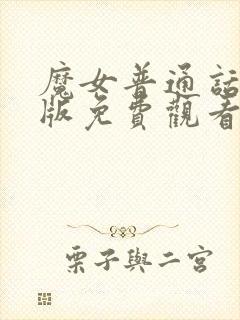 魔女普通話
版免費觀看
栗子與二宮